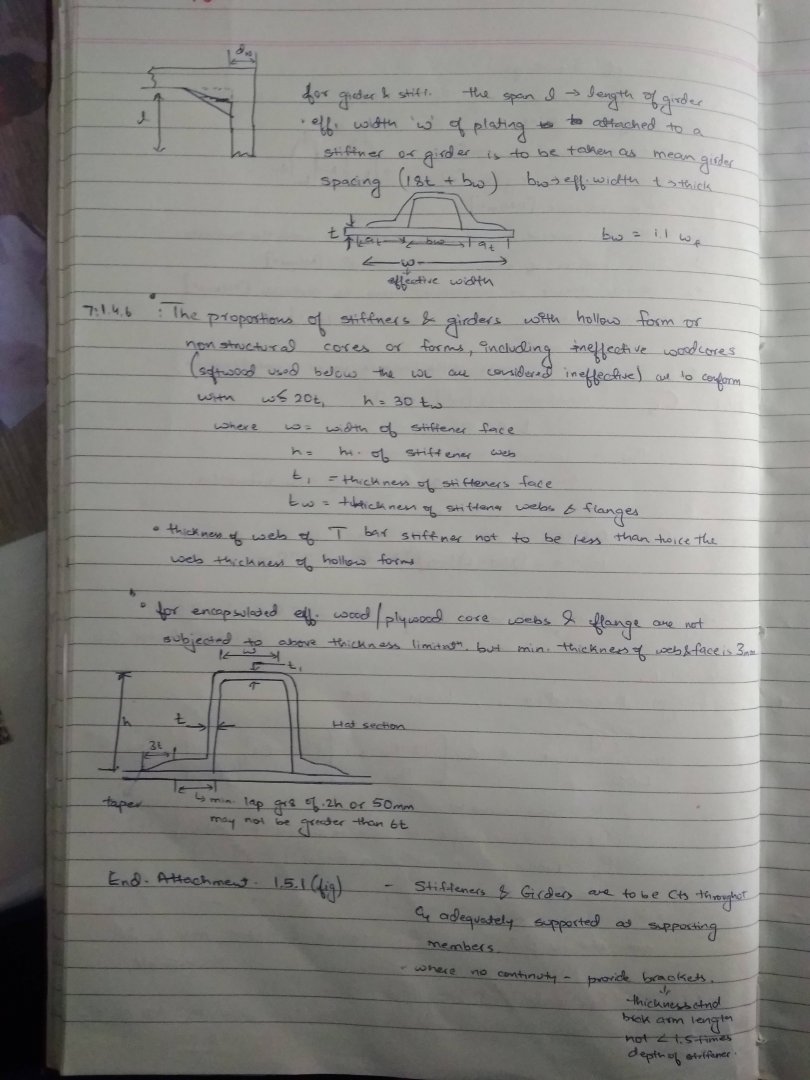 dw
l
for girder & stiff. the span l → length of girder
• eff. width 'w' of plating to to attached to a
stiffner or girder is to be taken as mean girder
spacing (18t + bw) bw → eff. width t → thick
t 9t bw 9t
bw = 1.1 w
w
effective width
7.1.4.6 • : The proportions of stiffners & girders with hollow form or
non structural cores or forms, including ineffective woodcores
(softwood used below the WL are considered ineffective) are to conform
with w ≤ 20t₁ h = 30 tw
where w = width of stiffener face
h = ht. of stiffener web
t₁ = thickness of stiffeners face
tw = thickness of stiffener webs & flanges
• thickness of web of T bar stiffner not to be less than twice the
web thickness of hollow forms
• for encapsulated eff. wood/plywood core webs & flange are not
subjected to above thickness limitatn. but min. thickness of web & face is 3mm
w
t₁
h
t
Hat section
3t
taper
↳ min. lap gr8 of .2h or 50mm
may not be greater than 6t
End. Attachment. 1.5.1 (fig) - Stiffeners & Girders are to be Cts throughot
& adequately supported at supporting
members.
- where no continuty - provide brackets.
thickness and
brck arm length
not < 1.5 times
depth of stiffener.